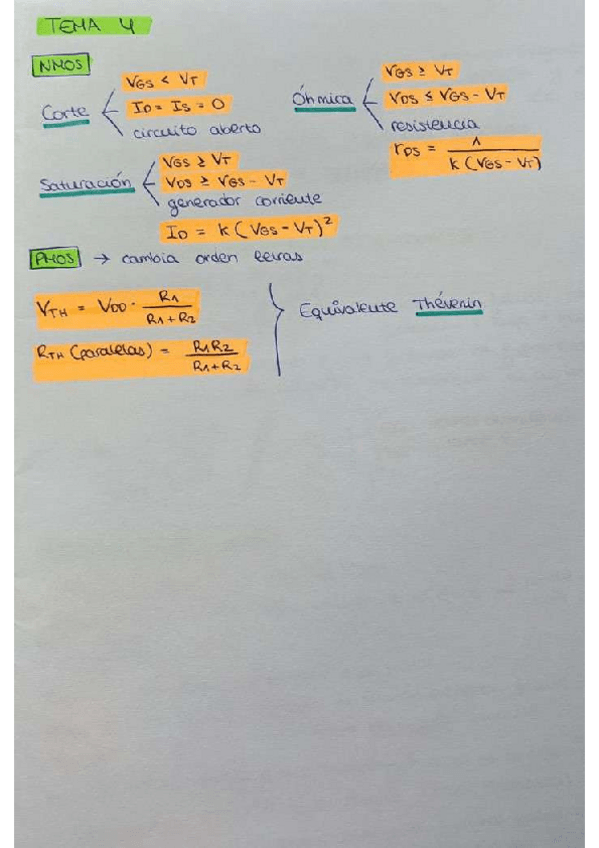 TEMA 4
NMOS
Corte
VGS < VT
ID = IS = 0
circuito abierto
Óhmica
VGS ≥ VT
VDS ≤ VGS - VT
resistencia
rDS = 1 / K (VGS - VT)
Saturación
VGS ≥ VT
VDS ≥ VGS - VT
generador corriente
ID = K (VGS - VT)²
PMOS → cambia orden letras
VTH = VDD · R1 / R1 + R2
RTH (paralelas) = R1R2 / R1 + R2
Equivalente Thévenin